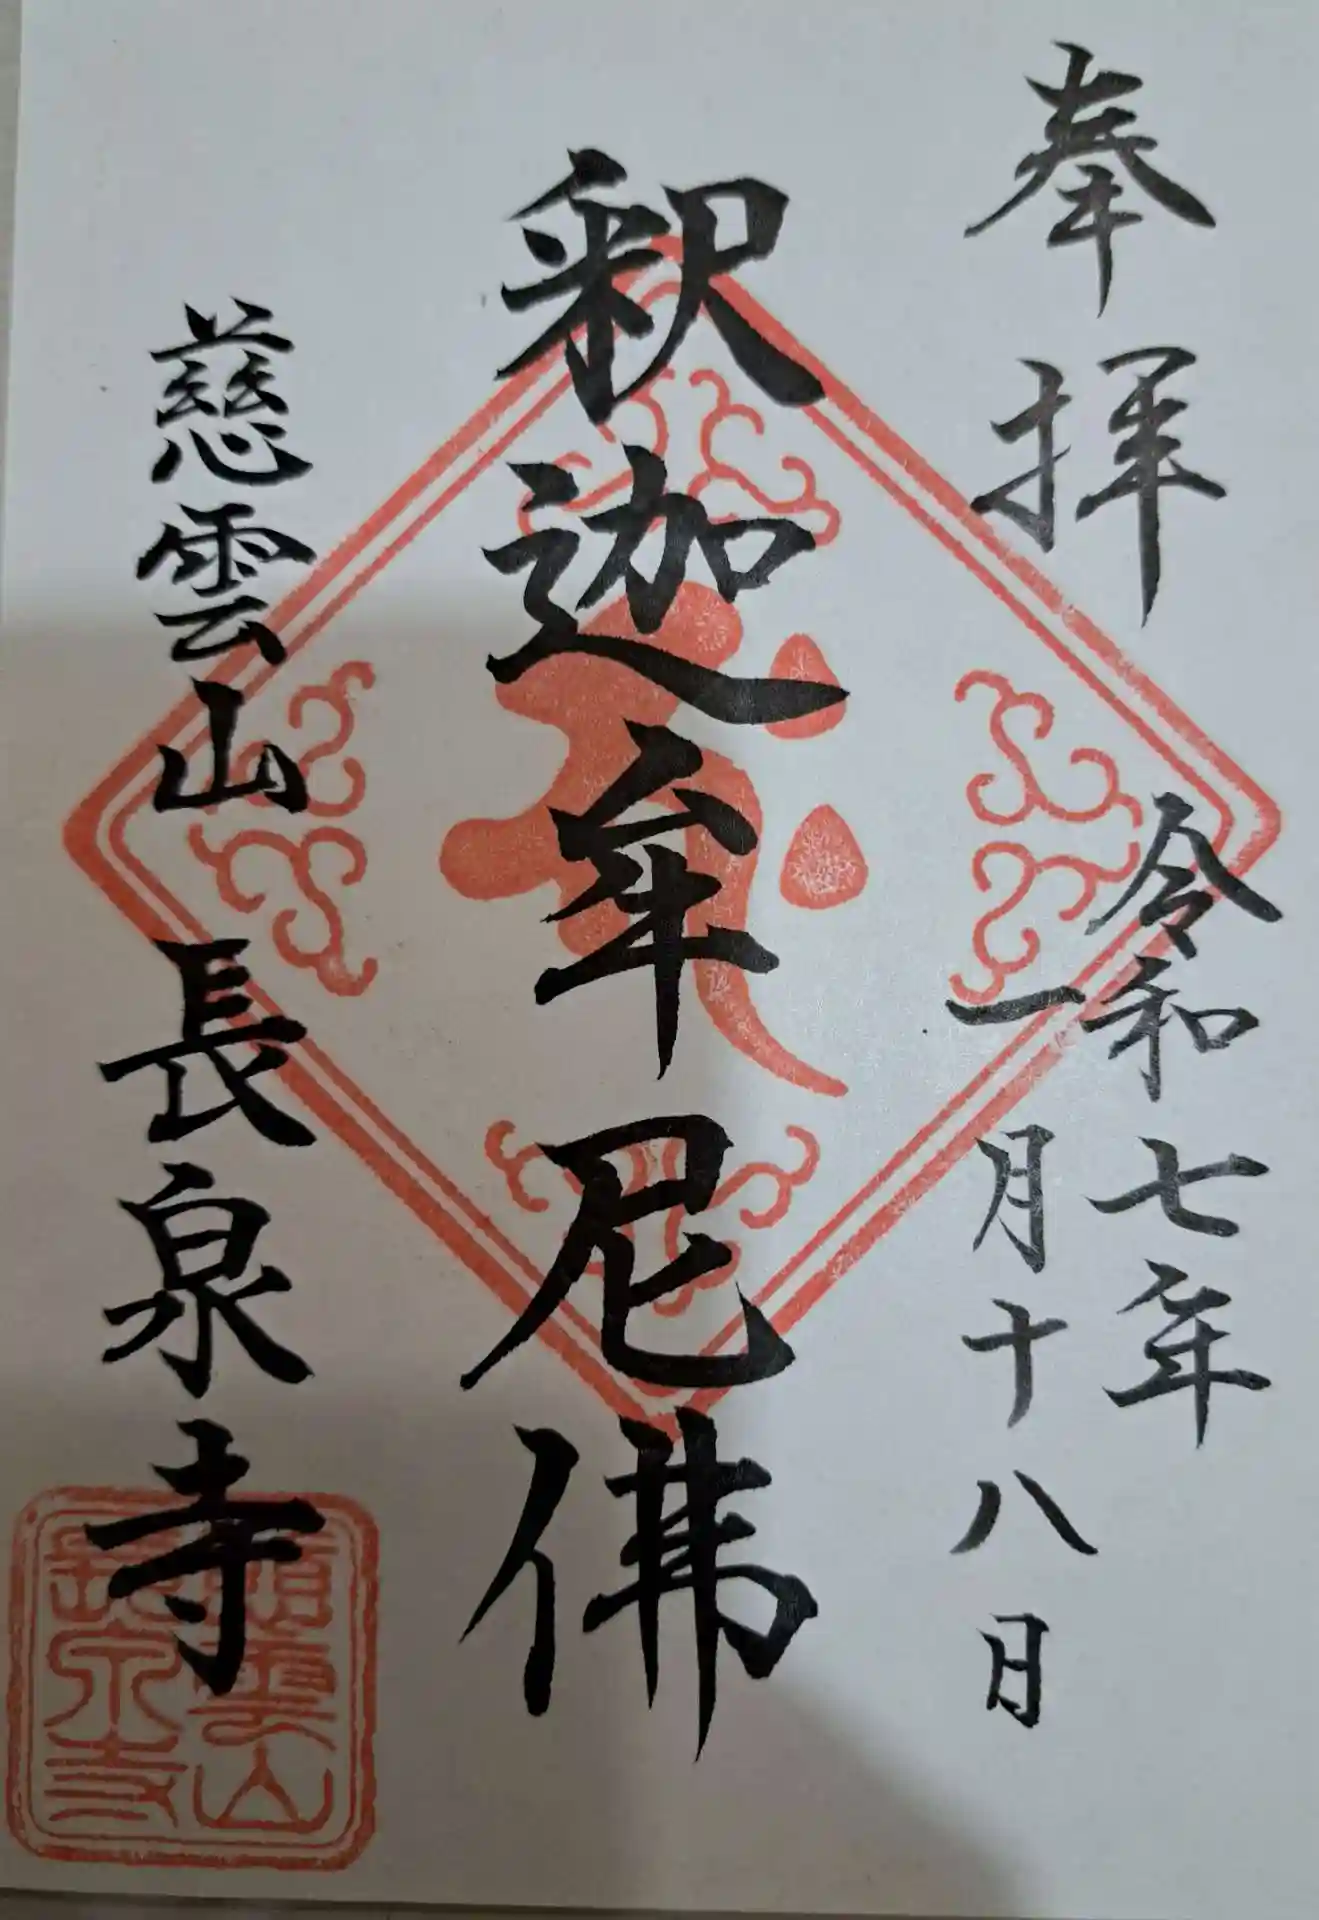 奉拝
令和七年
一月十八日
釈迦牟尼佛
慈雲山 長泉寺
慈雲山
長泉寺